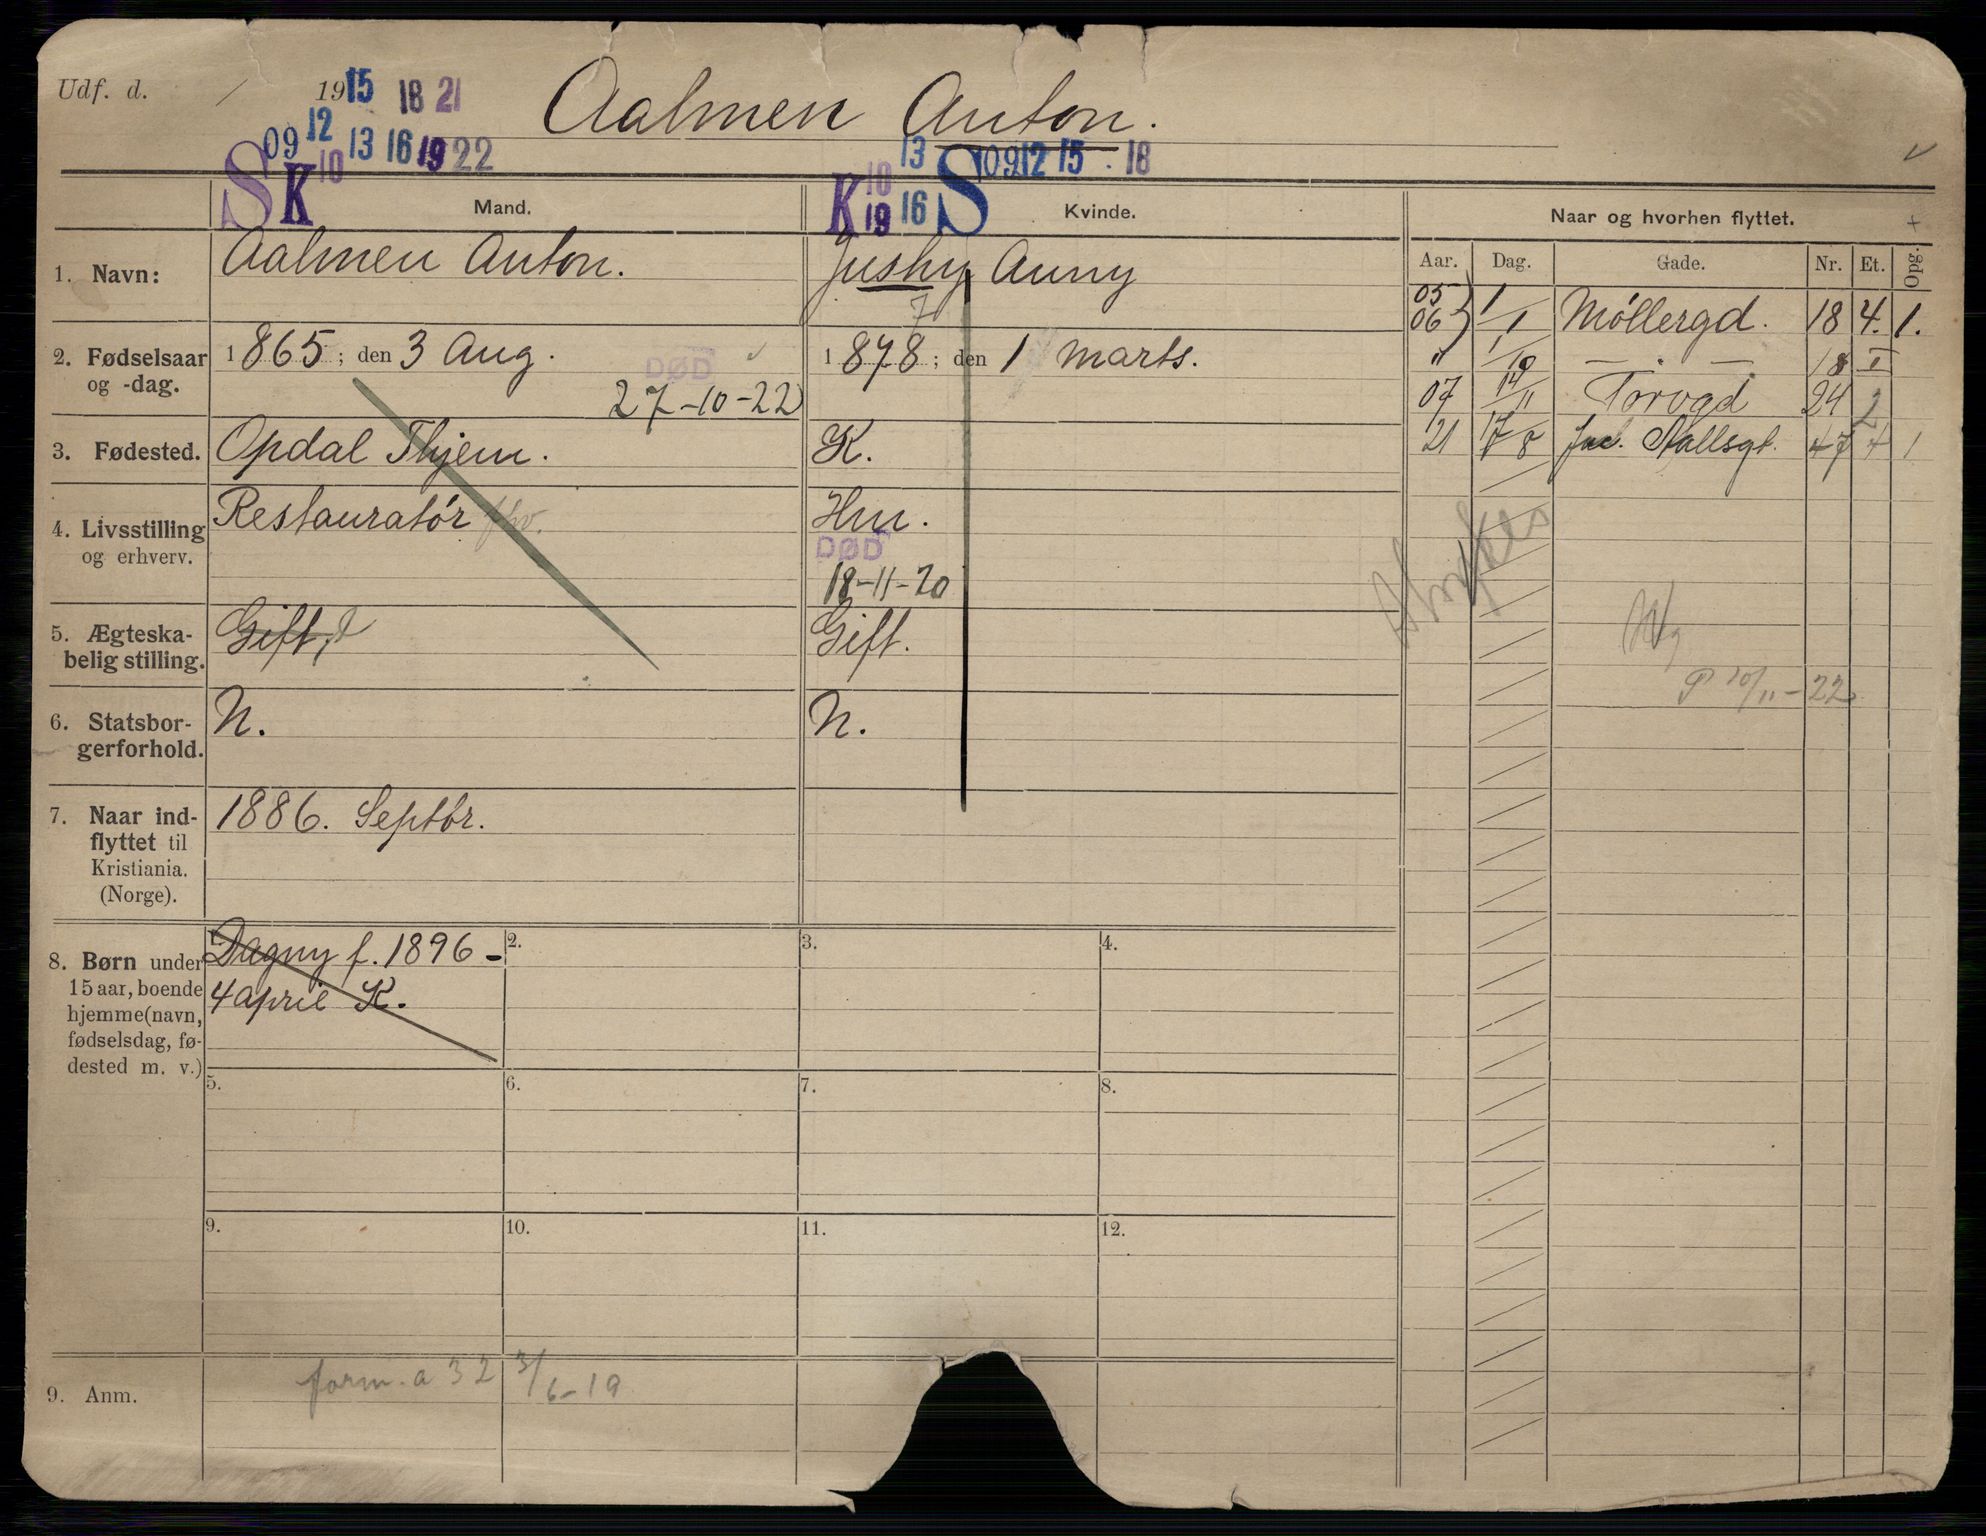 Udf. d. / 1915 18 21
Aalmen Anton.
09 12 10 13 16 19 22
S K
K 10 19 13 16 S 09 12 15 . 18
Mand.
Kvinde.
Naar og hvorhen flyttet.
Aar. Dag. Gade. Nr. Et. Opg.
1. Navn: Aalmen Anton. Anny
2. Fødselsaar og -dag.
1865; den 3 Aug.
DØD
27-10-22
1878; den 1 marts.
7
3. Fødested. Opdal Thjem. K.
4. Livsstilling og erhverv.
Restauratør fhv. Hu.
DØD
18-11-20
5. Ægteska-
belig stilling.
Gift, Gift.
6. Statsbor-
gerforhold.
N. N.
7. Naar ind-
flyttet til
Kristiania.
(Norge).
1886. Septbr.
05
06 1/1 Møllergd. 18 4. 1.
" 1/10 — " — 18 I
07 14/11 Torvgd 24 2
21 17/8 Stallsgt. 47 4 1
Afsykes
P 20/11-22
8. Børn under
15 aar, boende
hjemme (navn,
fødselsdag, fø-
dested m. v.)
1. Dagny f. 1896 -
4 april K.
2.
3.
4.
5.
6.
7.
8.
9.
10.
11.
12.
9. Anm.
form. a 32 3/6-19